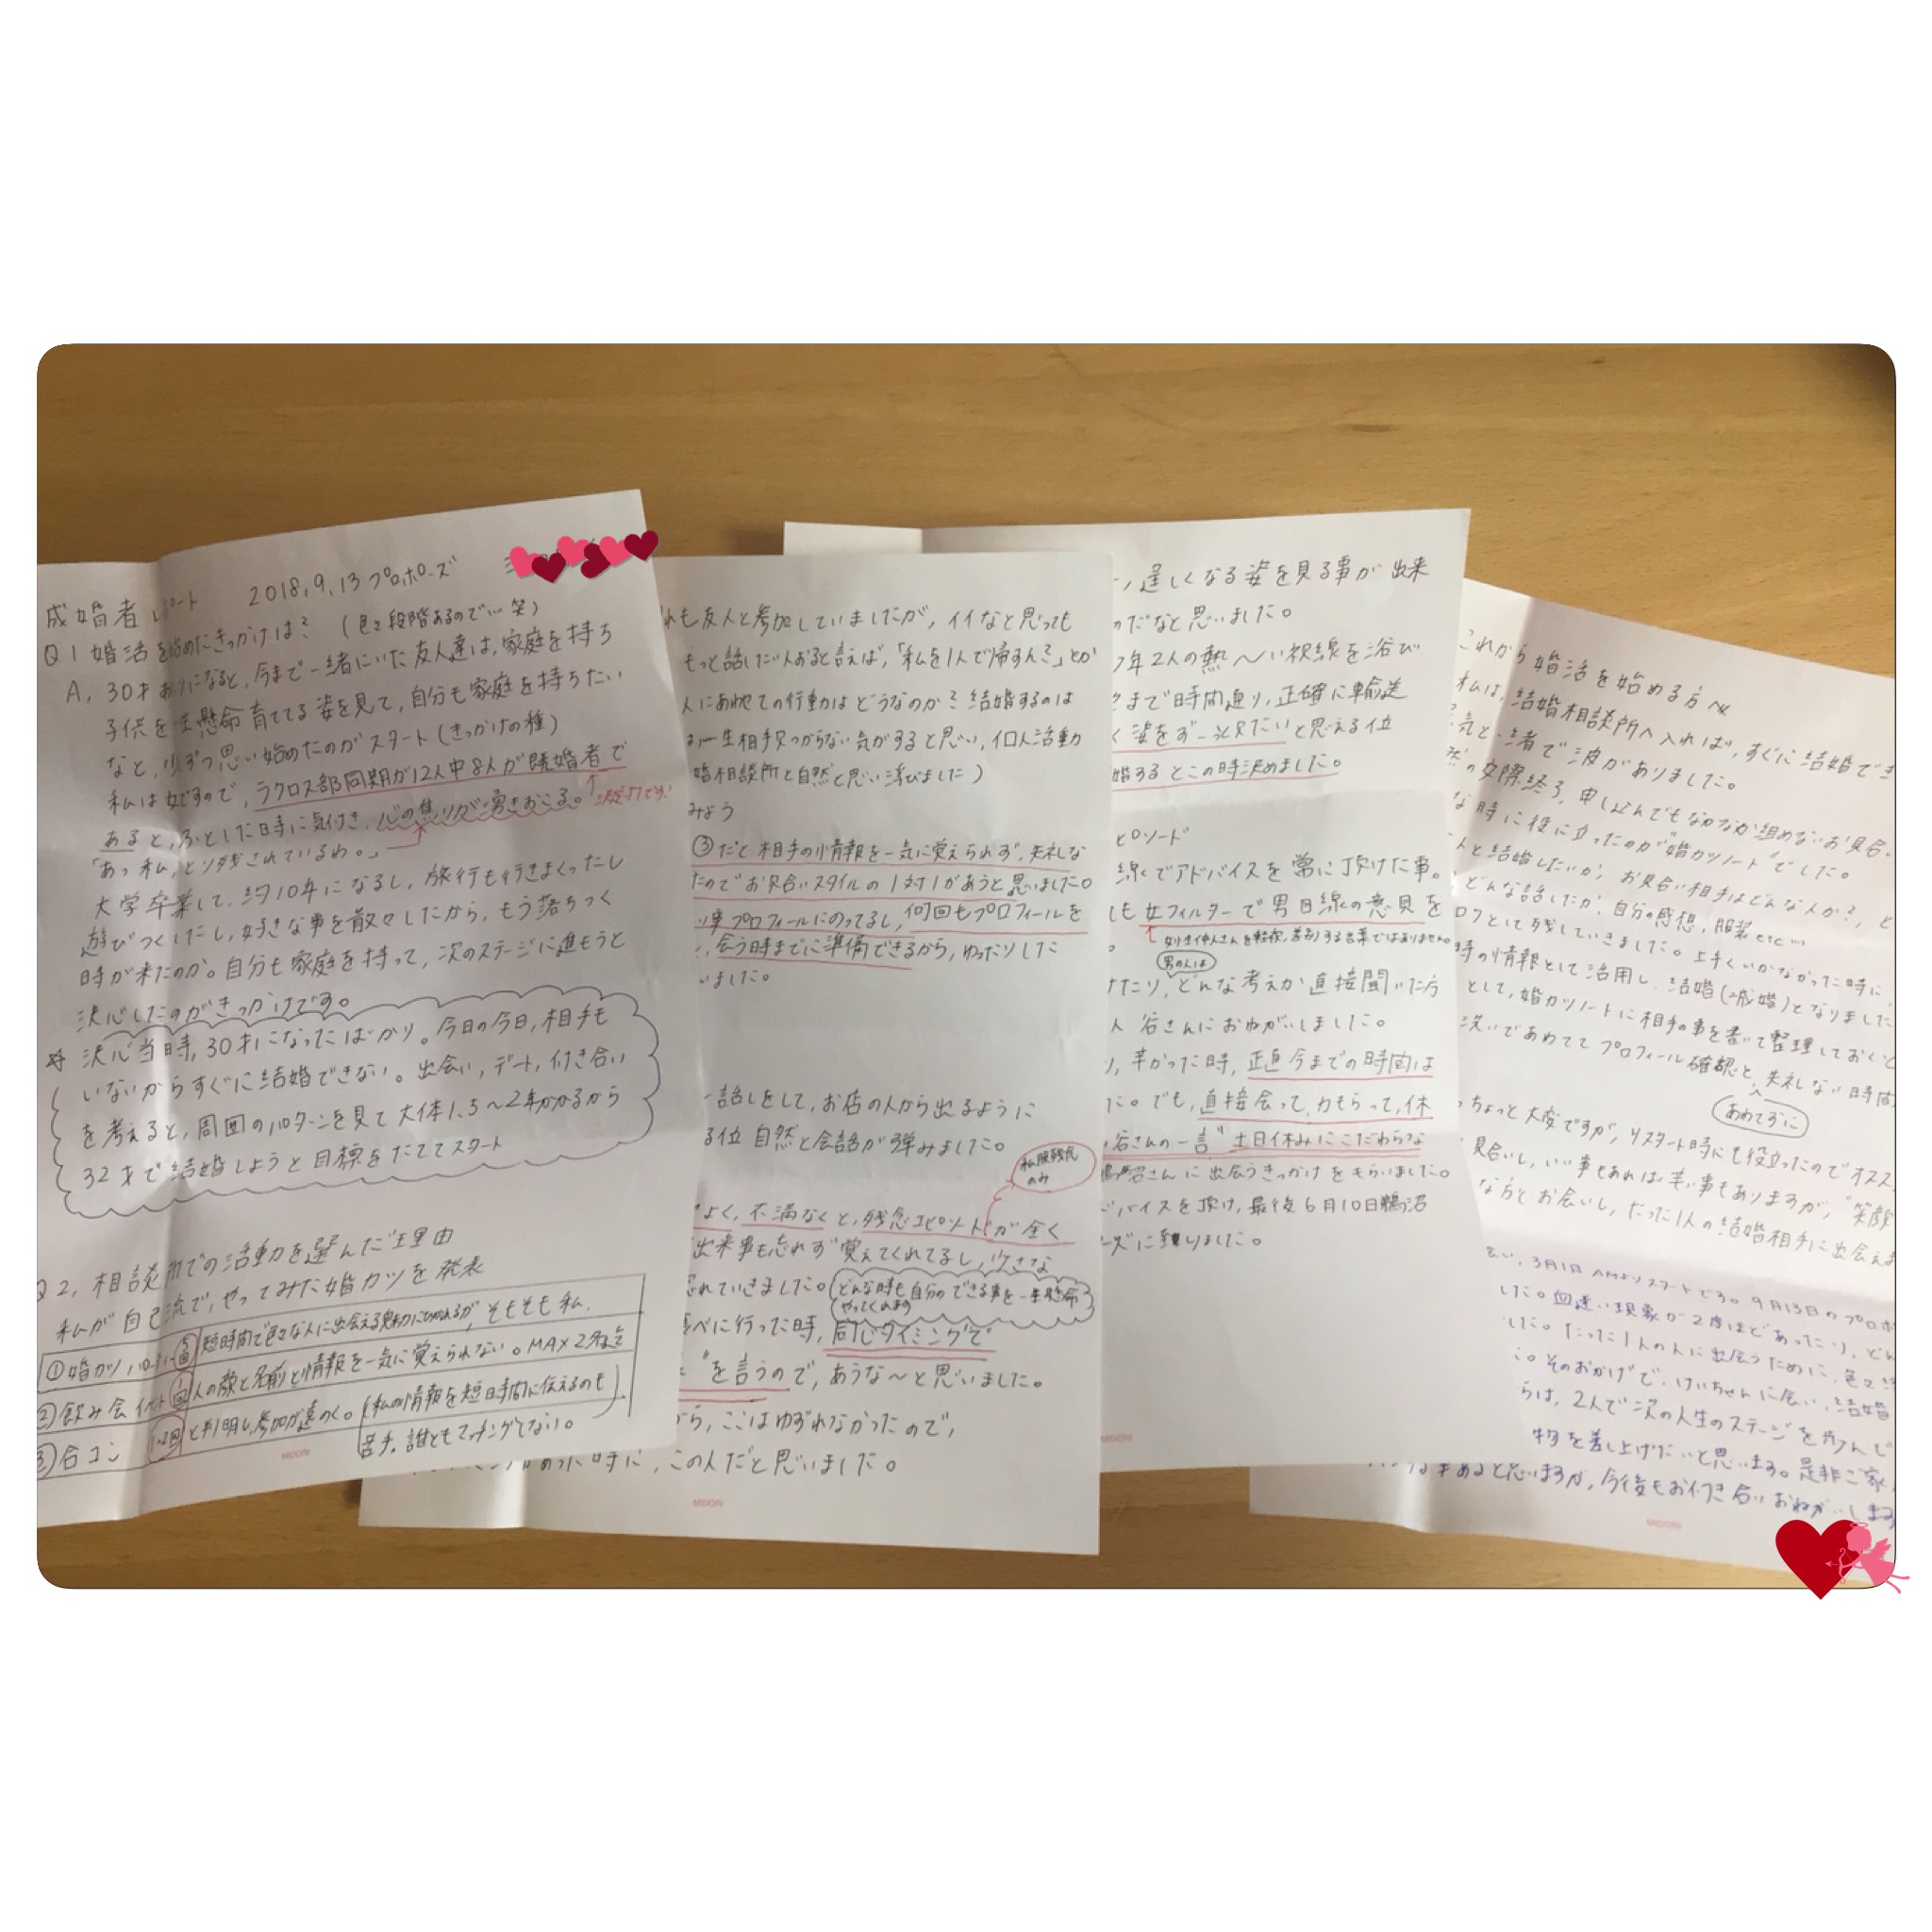 成婚者レポート 2018,9,13プロポーズ
Q1 婚活を始めたきっかけは? (色々段階あるのでいい笑)
A, 30才おりになると,今まで一緒にいた友人達は,家庭を持ち
子供を一生懸命育ててる姿を見て,自分も家庭を持ちたい
なと,少ずつ思い始めたのがスタート(きっかけの種)
私は女ですので,ラクロス部同期が12人中8人が既婚者で
決定打です!
あると,ふとした日時に気付き,心の焦りが湧きおこる。
「あっ私,とり残されているわ。」
大学卒業して,約10年になるし,旅行も行きまくったし
遊びつくしたし,好きな事を散々したから,もう落ちつく
時が来たのか。自分も家庭を持って,次のステージに進もうと
決心したのがきっかけです。
決心当時,30才になったばかり。今日の今日,相手も
いないからすぐに結婚できない。出会い,デート,付き合い
を考えると,周囲のパターンを見て大体1,5〜2年かかるから
32才で結婚しようと目標をたててスタート
Q2,相談所での活動を選んだ理由
私が自己流で,やってみた婚カツを発表
①婚カツパーティー5回 短時間で色々な人に出会える魅力にひかれるが,そもそも私,
②飲み会イベント1回 人の顔と名前と情報を一気に覚えられない。MAX2名迄
③合コン 1〜2回 と判明し参加が遠のく。(私の情報を短時間に伝えるのも
苦手。誰ともマッチングしてない。)
MIDORI
れも友人と参加していましたが,イイなと思っても
もっと話したい人おると言えば,「私を1人で帰すん?」とか
人にあわせての行動はどうなのか?結婚するのは
一生相手見つからない気がすると思い,個人活動
婚相談所と自然と思い浮びました)
みよう
③だと相手の情報を一気に覚えられず,失礼な
たのでお見合いスタイルの1対1があうと思いました。
事プロフィールにのってるし,何回もプロフィールを
会う時までに準備できるから,ゆったりした
いました。
話しをして,お店の人から出るように
る位 自然と会話が弾みました。
私服残念のみ
よく,不満なくと,残念エピソードが全く
出来事も忘れず覚えてくれてるし,少さな
忘れていきました。どんな時も自分のできる事を一生懸命
やってくれます
べに行った時,同じタイミングで
"を言うので,あうな〜と思いました。
ら,ここはゆずれなかったので,
時に,この人だと思いました。
MIDORI
,逞しくなる姿を見る事が出来
のだなと思いました。
年2人の熱〜い視線を浴び
まで時間通り,正確に輸送
姿をずーっと見たいと思える位
婚するとこの時決めました。
ピソード
線くでアドバイスを常に頂けた事。
も女フィルターで男目線の意見を
女性仲人さんを軽視,差別する言葉ではありません。
男の人は
たり,どんな考えか直接聞いた方
人 谷さんにおねがいしました。
,辛かった時,正直今までの時間は
た。でも,直接会って,力もらって,休
谷さんの一言"土日休みにこだわらな
鵜沼さんに出会うきっかけをもらいました。
バイスを頂け,最後6月10日鵜沼
ーズに至りました。
MIDORI
これから婚活を始める方へ
私は,結婚相談所へ入れば,すぐに結婚でき
気と一緒で波がありました。
の交際終了,申し込んでもなかなか組めないお見合
な時に役に立ったのが"婚カツノート"でした。
人と結婚したいか,お見合い相手はどんな人か?,ど
どんな話したか,自分の感想,服装etc…
ログとして残していきました。上手くいかなかった時に,
時の情報として活用し,結婚(成婚)となりました
として,婚カツノートに相手の事を書いて整理しておくと
次いであわてて プロフィール確認と,失礼しない時間
あわてずに
ちょっと大変ですが,リスタート時にも役立ったのでオスス
見合いし,いい事もあれば辛い事もありますが,"笑顔
な方とお会いし,たった1人の結婚相手に出会えま
3月1日AMよりスタートです。9月13日のプロポ
した。勘違い現象が2度ほどあったり,どん
した。たった1人の人に出会うために,色々
。そのおかげで,けいちゃんに会い,結婚
らは,2人で次の人生のステージを歩んで
物を差し上げたいと思います。是非ご家
事あると思いますが,今後もお付き合いおねがいします
MIDORI